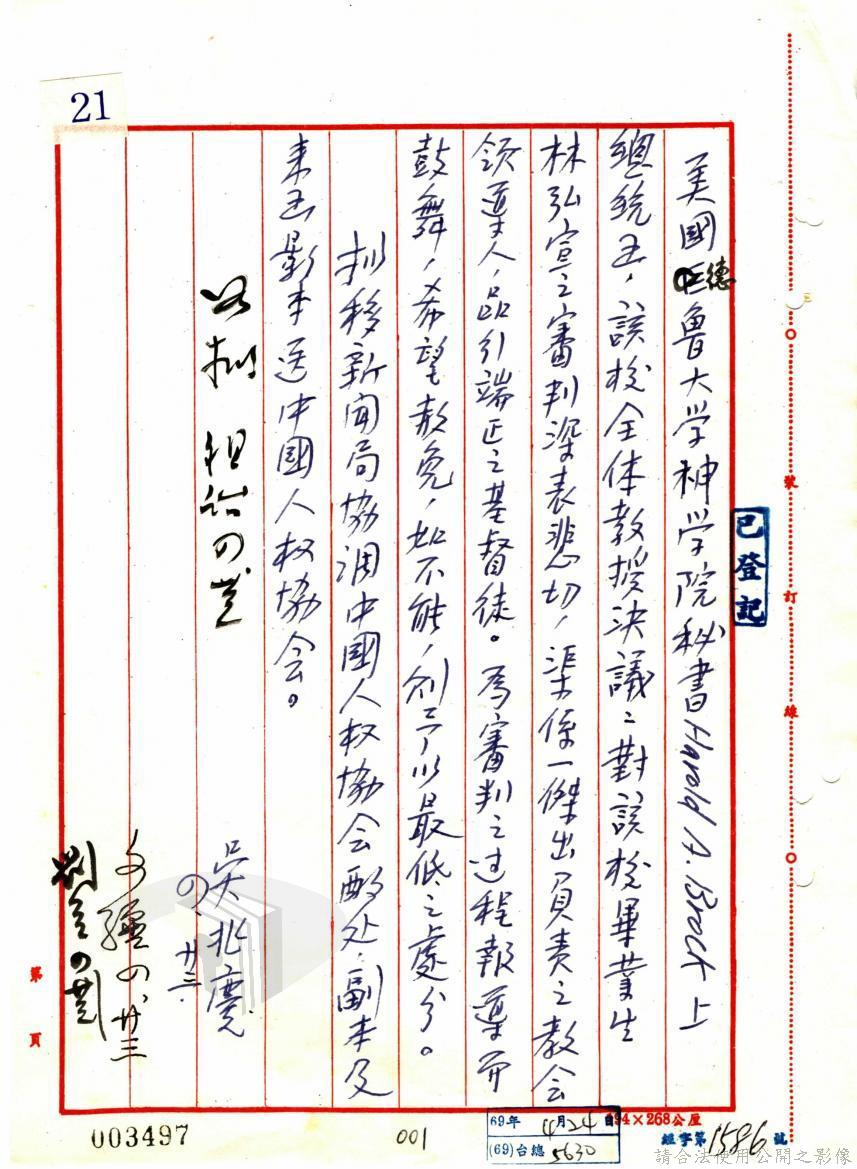 21
美國德魯大学神学院秘書Harold A. Brack上
總統函,該校全体教授決議:對該校畢業生
林弘宣之審判深表悲切,渠係一傑出負責之教会
領導人,品行端正之基督徒。為審判之过程報導而
鼓舞,希望赦免,如不能,則予以最低之處分。
擬移新闻局協調中國人权協会酌处,副本及
來函影本送中國人权協会。
吳兆慶
四.廿三.
如擬
四廿三
已登記
裝
訂
線
第
頁
003497
001
69年4月24日
(69)台總5630
194×268公厘
經字第1586號
請合法使用公開之影像